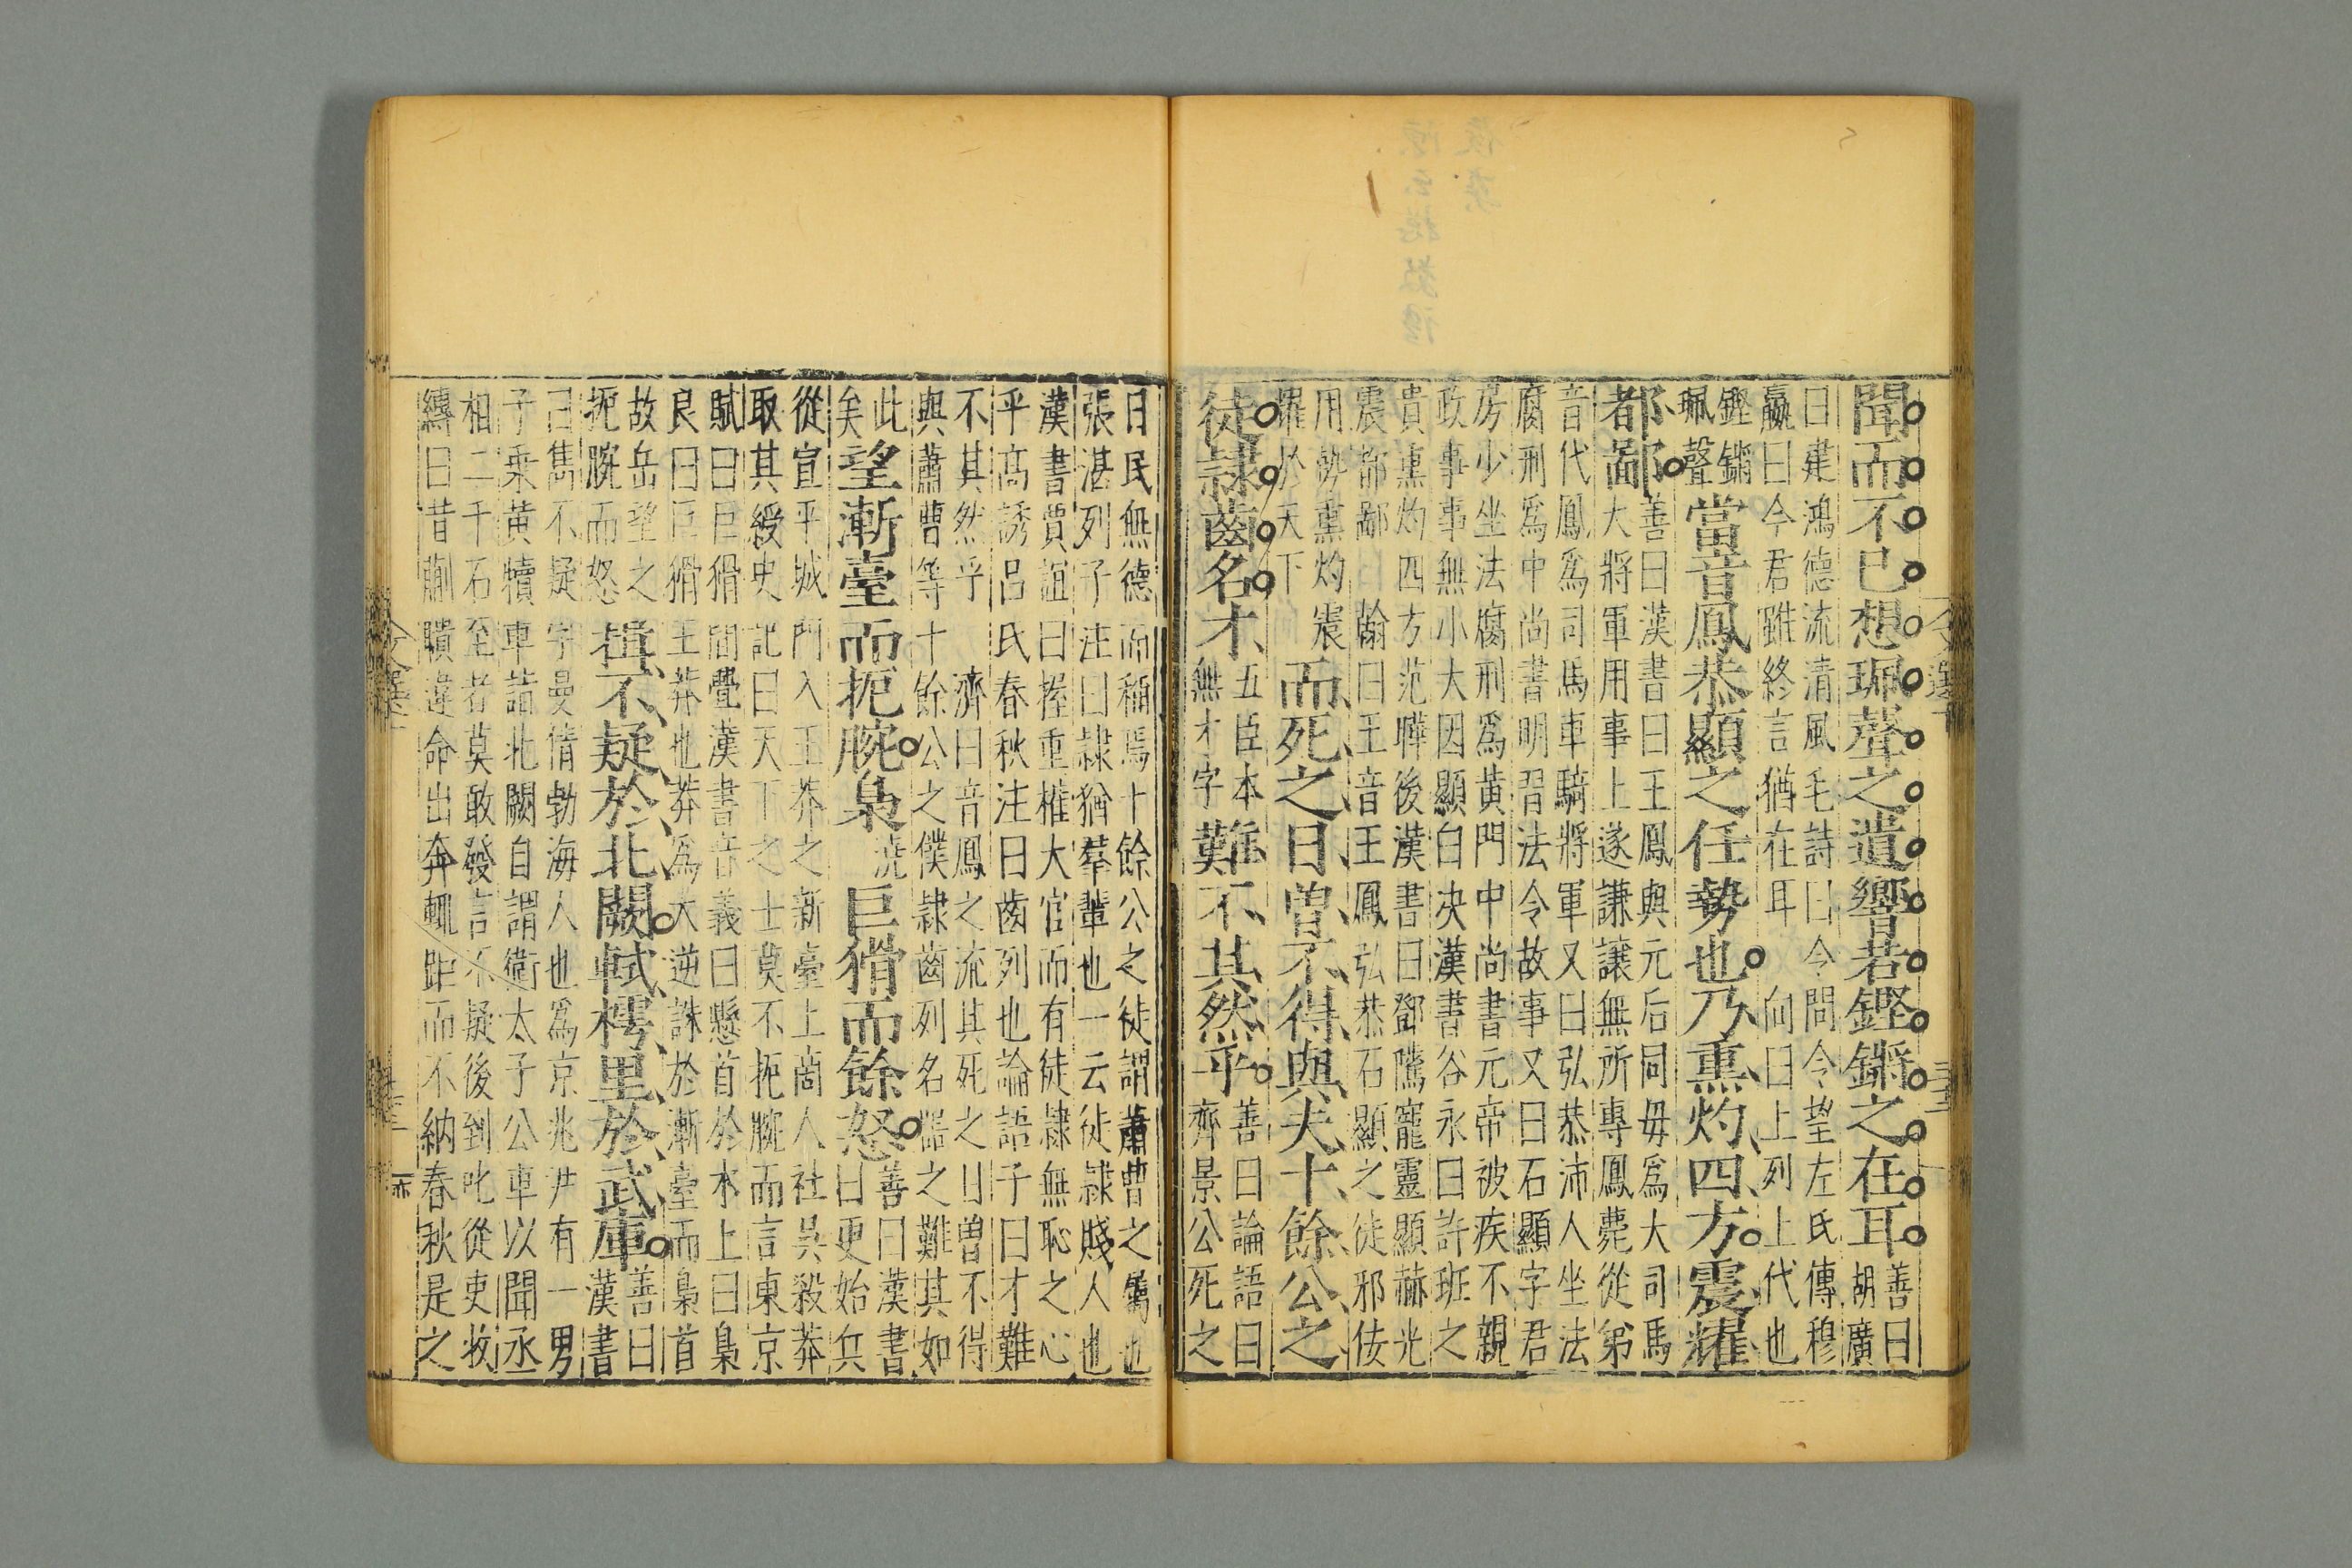 聞而不已想珮聲之遺響若鏗鏘之在耳善曰胡廣
曰建鴻德流清風毛詩曰令問令望左氏傳穆
嬴曰今君雖終言猶在耳 向曰上列上代也
鏗鏘珮聲當音鳳恭顯之任勢也乃熏灼四方震耀
都鄙善曰漢書曰王鳳與元后同毋爲大司馬
大將軍用事上遂謙讓無所專鳳薨從弟
音代鳳爲司馬車騎將軍又曰弘恭沛人坐法
腐刑爲中尚書明習法令故事又曰石顯字君
房少坐法腐刑爲黄門中尚書元帝被疾不親
政事事無小大因顯白决漢書谷永曰許班之
貴熏灼四方范曄後漢書曰鄧隲寵靈顯赫光
震都鄙 翰曰王音王鳳弘恭石顯之徒邪佞
用勢熏灼震耀於天下而死之日曾不得與夫十餘公之
徒隸齒名才五臣本無才字難不其然乎善曰論語曰齊景公死之
日民無德而稱焉十餘公之徒謂蕭曹之屬也
張湛列子注曰隸猶羣輩也一云徒隸賤人也
漢書賈誼曰握重權大官而有徒隸無恥之心
乎高誘呂氏春秋注曰齒列也論語子曰才難
不其然乎 濟曰音鳳之流其死之日曾不得
與蕭曹等十餘公之僕隸齒列名器之難其如
此矣望漸臺而扼腕梟澆巨猾而餘怒善曰漢書曰更始兵
從宣平城門入王莽之新臺上商人社吳殺莽
取其綬史記曰天下之士莫不扼腕而言東京
賦曰巨猾間舋漢書音義曰懸首於木上曰梟
良曰巨猾王莽也莽爲大逆誅於漸臺而梟首
故岳望之扼腕而怒揖不疑於北闕軾樗里於武庫善曰漢書
曰雋不疑字曼倩勃海人也爲京兆尹有一男
子乘黄犢車詣北闕自謂衛太子公車以聞丞
相二千石至者莫敢發言不疑後到叱從吏收
縳曰昔蒯聵違命出奔輒距而不納春秋是之